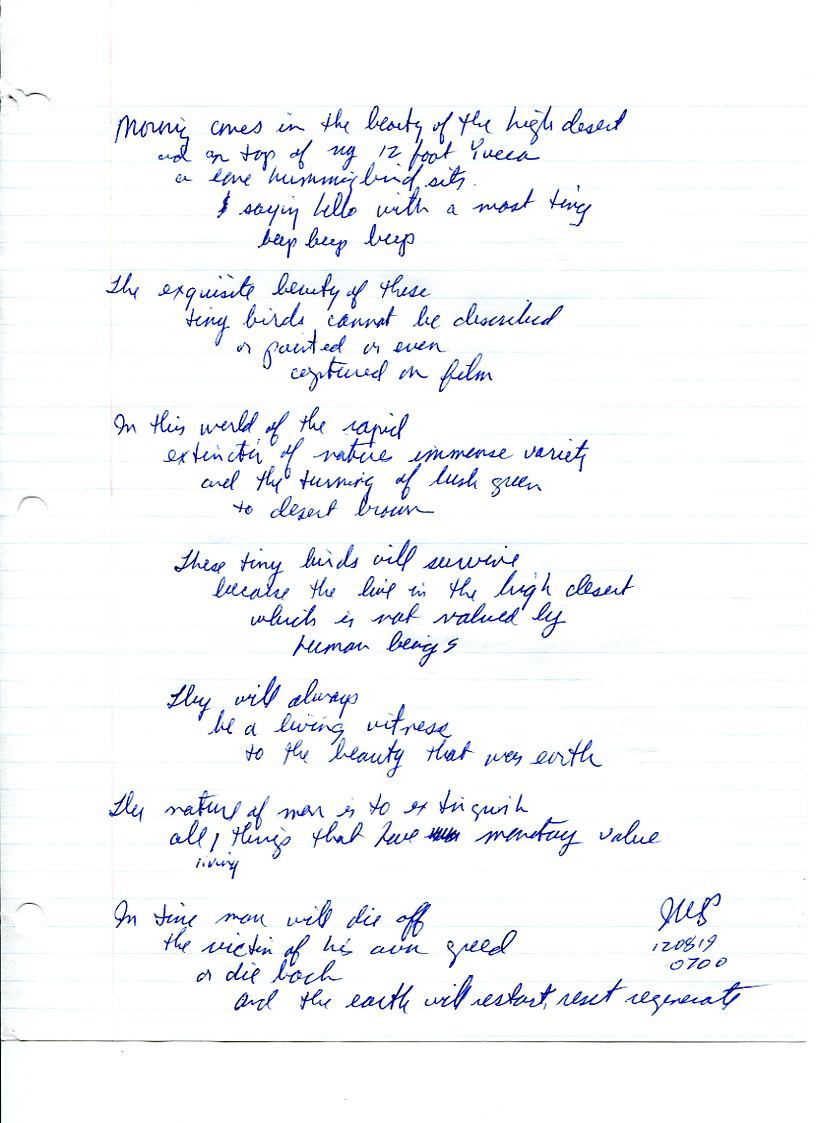 Morning comes in the beauty of the high desert
and on top of my 12 foot Yucca
a lone hummingbird sits
saying hello with a most tiny
beep beep beep
The exquisite beauty of these
tiny birds cannot be described
or painted or even
captured on film
In this world of the rapid
extinction of natures immense variety
and the turning of lush green
to desert brown
These tiny birds will survive
because the live in the high desert
which is not valued by
human beings
They will always
be a living witness
to the beauty that was earth
The nature of man is to extinguish
all living things that have monetary value
In time man will die off
the victim of his own greed
or die back
and the earth will restart, reset regenerate
120819
0700